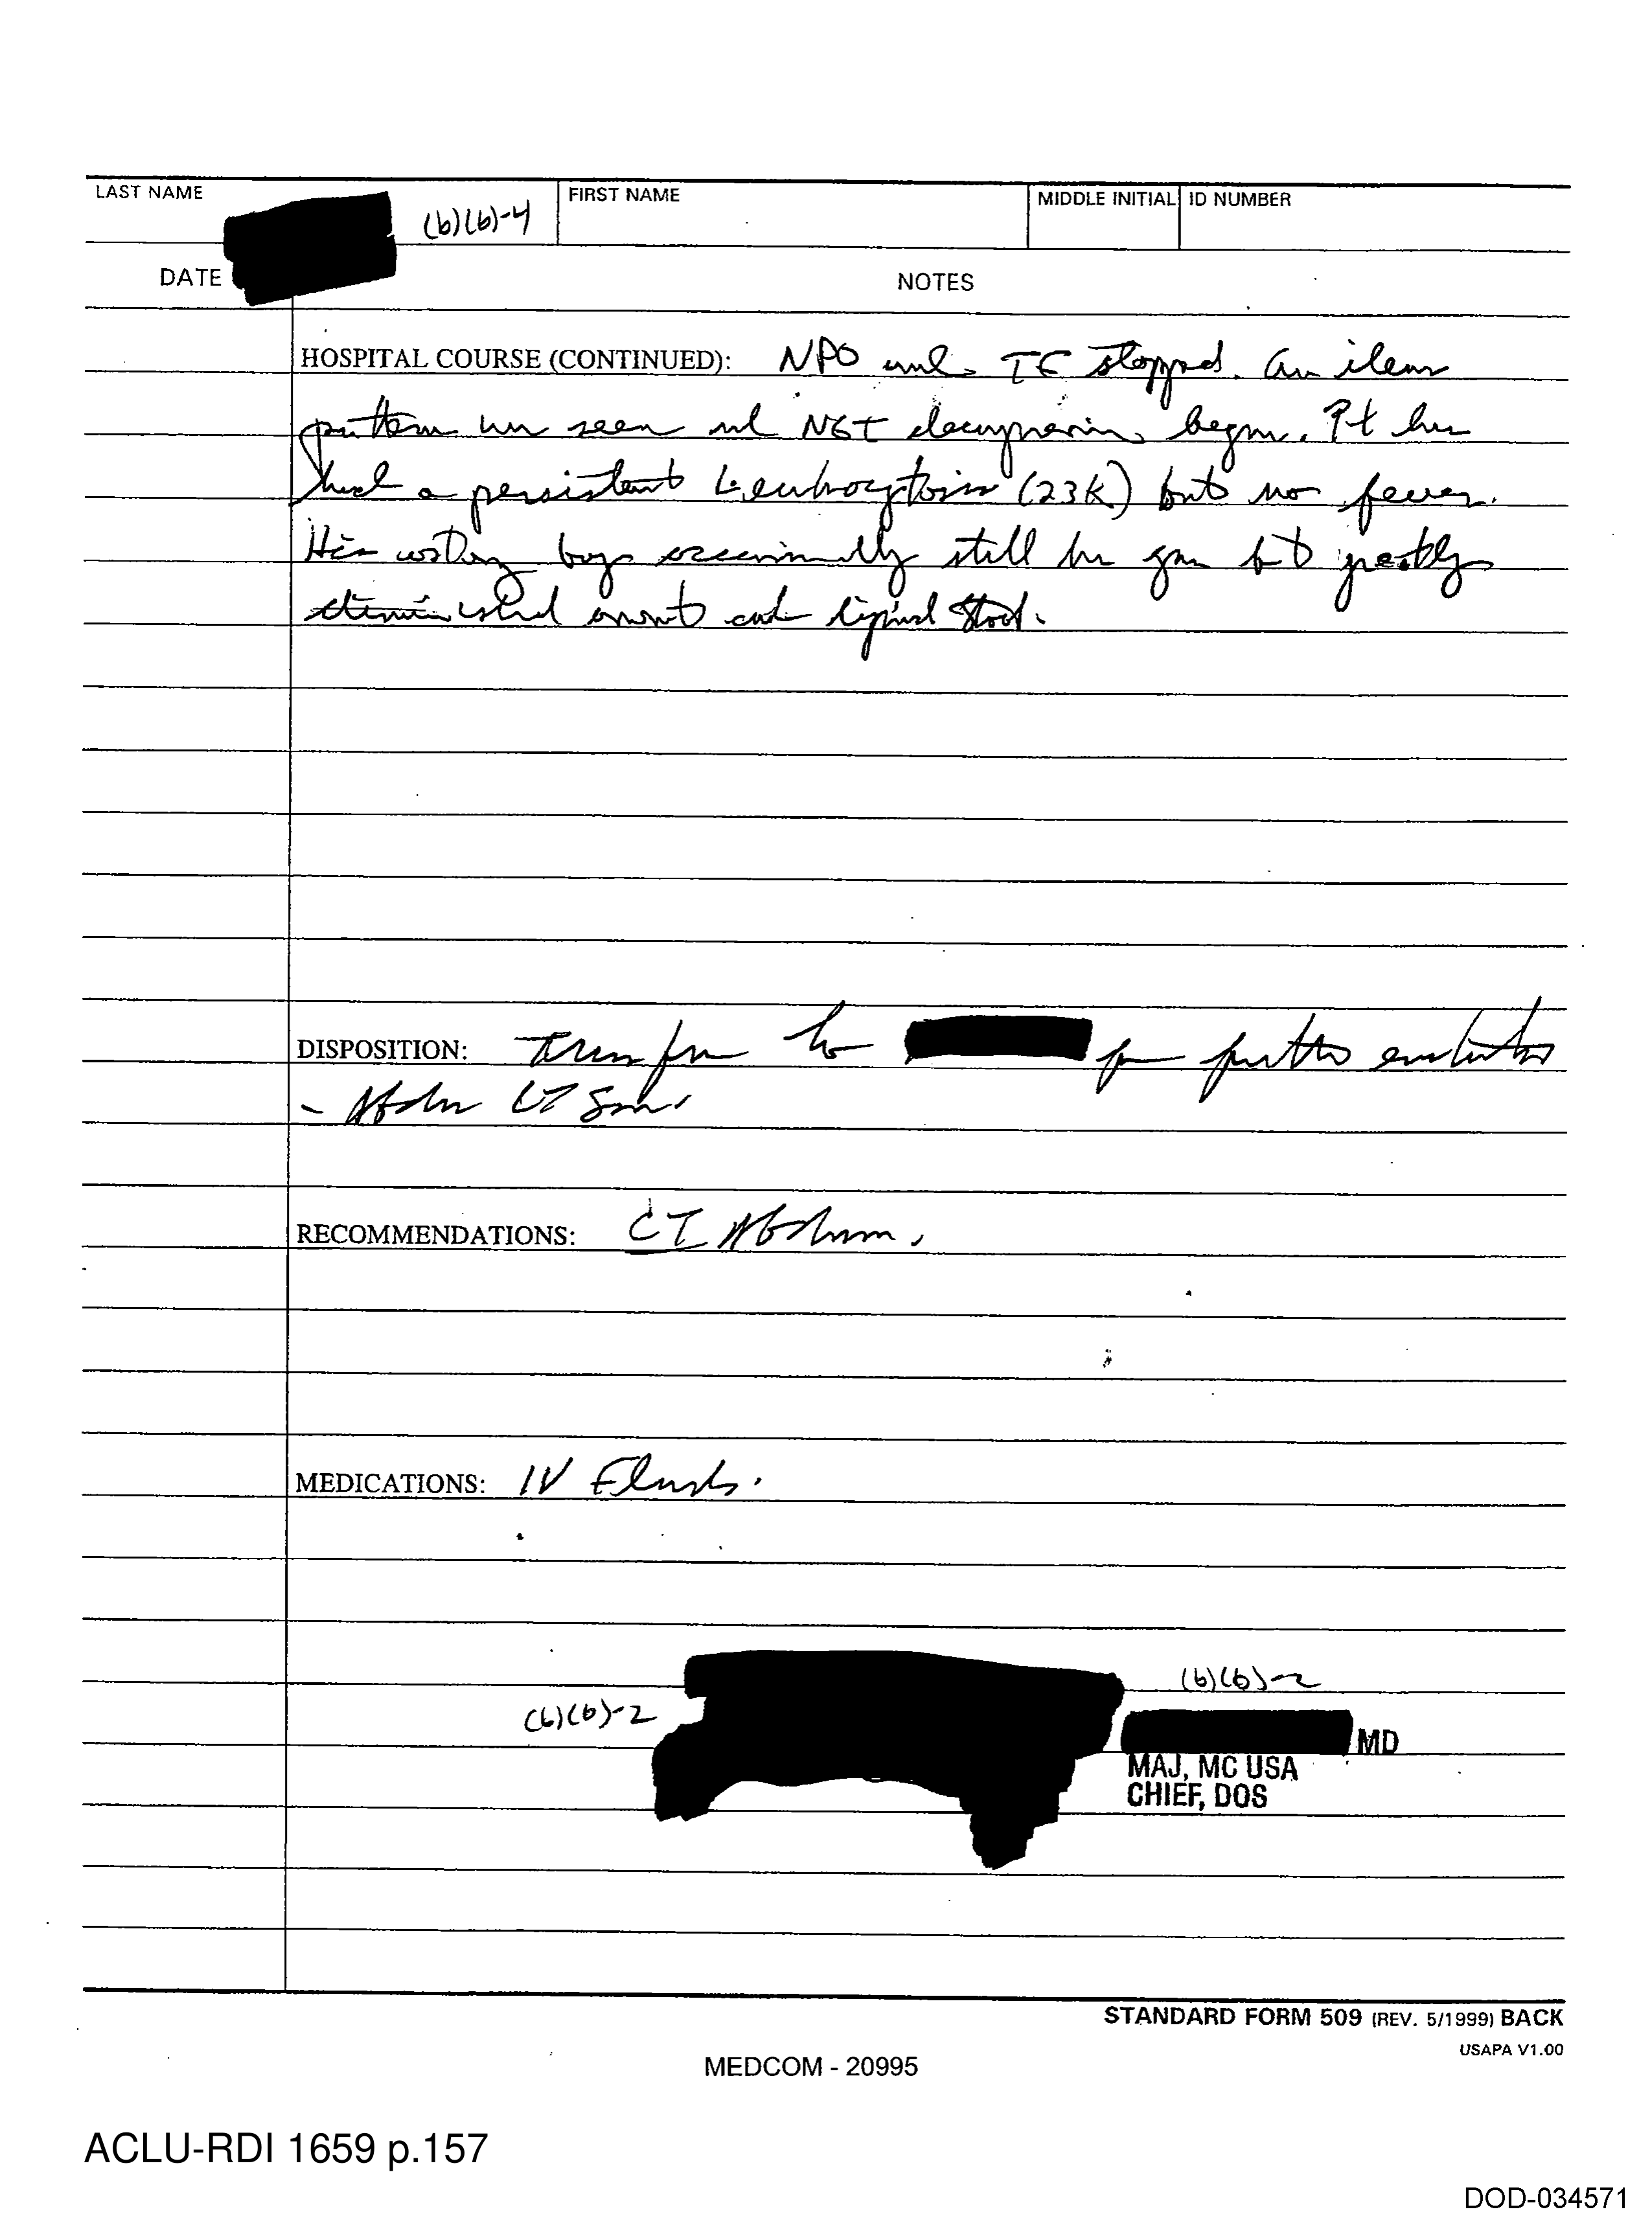 LAST NAME
(b)(6)-4
FIRST NAME
MIDDLE INITIAL
ID NUMBER
DATE
NOTES
HOSPITAL COURSE (CONTINUED): NPO and TF stopped. An ileus
pattern was seen and NGT begun. Pt has
had a persistent Leukocytosis (23K) but no fever.
His bag occasionally still has gas but greatly
diminished amount and liquid stool.
DISPOSITION: Transfer to for further evaluation
- CT
RECOMMENDATIONS: CT Abdomen.
MEDICATIONS: IV Fluids.
(b)(6)-2
(b)(6)-2
MD
MAJ, MC USA
CHIEF, DOS
STANDARD FORM 509 (REV. 5/1999) BACK
USAPA V1.00
MEDCOM - 20995
ACLU-RDI 1659 p.157
DOD-034571